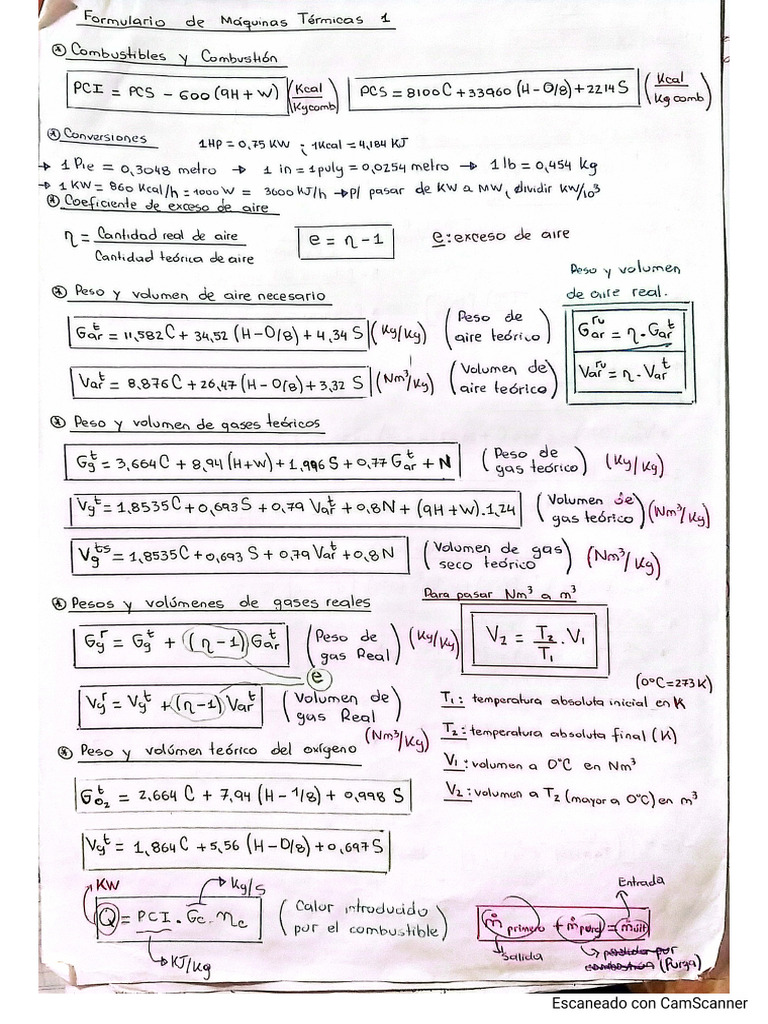 Formulario de Máquinas Térmicas 1
* Combustibles y Combustión
PCI = PCS - 600 (9H + W) (Kcal/Kgcomb) PCS = 8100C + 33960 (H - O/8) + 2214 S (Kcal/Kgcomb)
* Conversiones 1HP = 0,75 KW ; 1Kcal = 4,184 KJ
→ 1 Pie = 0,3048 metro → 1 in = 1pulg = 0,0254 metro → 1 lb = 0,454 kg
→ 1 KW = 860 Kcal/h = 1000 W = 3600 KJ/h → P/ pasar de KW a MW, dividir KW/10³
* Coeficiente de exceso de aire
η = Cantidad real de aire / Cantidad teórica de aire e = η - 1 e: exceso de aire
* Peso y volumen de aire necesario
Peso y volumen de aire real.
Gar^t = 11,582C + 34,52 (H - O/8) + 4,34 S (Kg/Kg) (Peso de aire teórico) Gar^ru = η . Gar^t
Var^t = 8,876C + 26,47 (H - O/8) + 3,32 S (Nm³/Kg) (Volumen de aire teórico) Var^ru = η . Var^t
* Peso y volumen de gases teóricos
Gg^t = 3,664C + 8,94 (H + W) + 1,996 S + 0,77 Gar^t + N (Peso de gas teórico) (Kg/Kg)
Vg^t = 1,8535C + 0,693 S + 0,79 Var^t + 0,8 N + (9H + W) . 1,24 (Volumen de gas teórico) (Nm³/Kg)
Vg^ts = 1,8535C + 0,693 S + 0,79 Var^t + 0,8 N (Volumen de gas seco teórico) (Nm³/Kg)
* Pesos y volúmenes de gases reales
Gg^r = Gg^t + (η - 1) Gar^t (Peso de gas Real) (Kg/Kg)
e
Vg^r = Vg^t + (η - 1) Var^t (Volumen de gas Real) (Nm³/Kg)
Para pasar Nm³ a m³
V2 = T2/T1 . V1
(0°C = 273 K)
T1: temperatura absoluta inicial en K
T2: temperatura absoluta final (K)
V1: volumen a 0°C en Nm³
V2: volumen a T2 (mayor a 0°C) en m³
* Peso y volúmen teórico del oxígeno
G^t O2 = 2,664 C + 7,94 (H - 1/8) + 0,998 S
Vg^t = 1,864C + 5,56 (H - O/8) + 0,697 S
KW Kg/s
Q = PCI . Gc . ηc (Calor introducido por el combustible)
KJ/Kg
Entrada
ṁ primero + ṁ purg = ṁ últ
Salida
perdida por combustión (Purga)
Escaneado con CamScanner